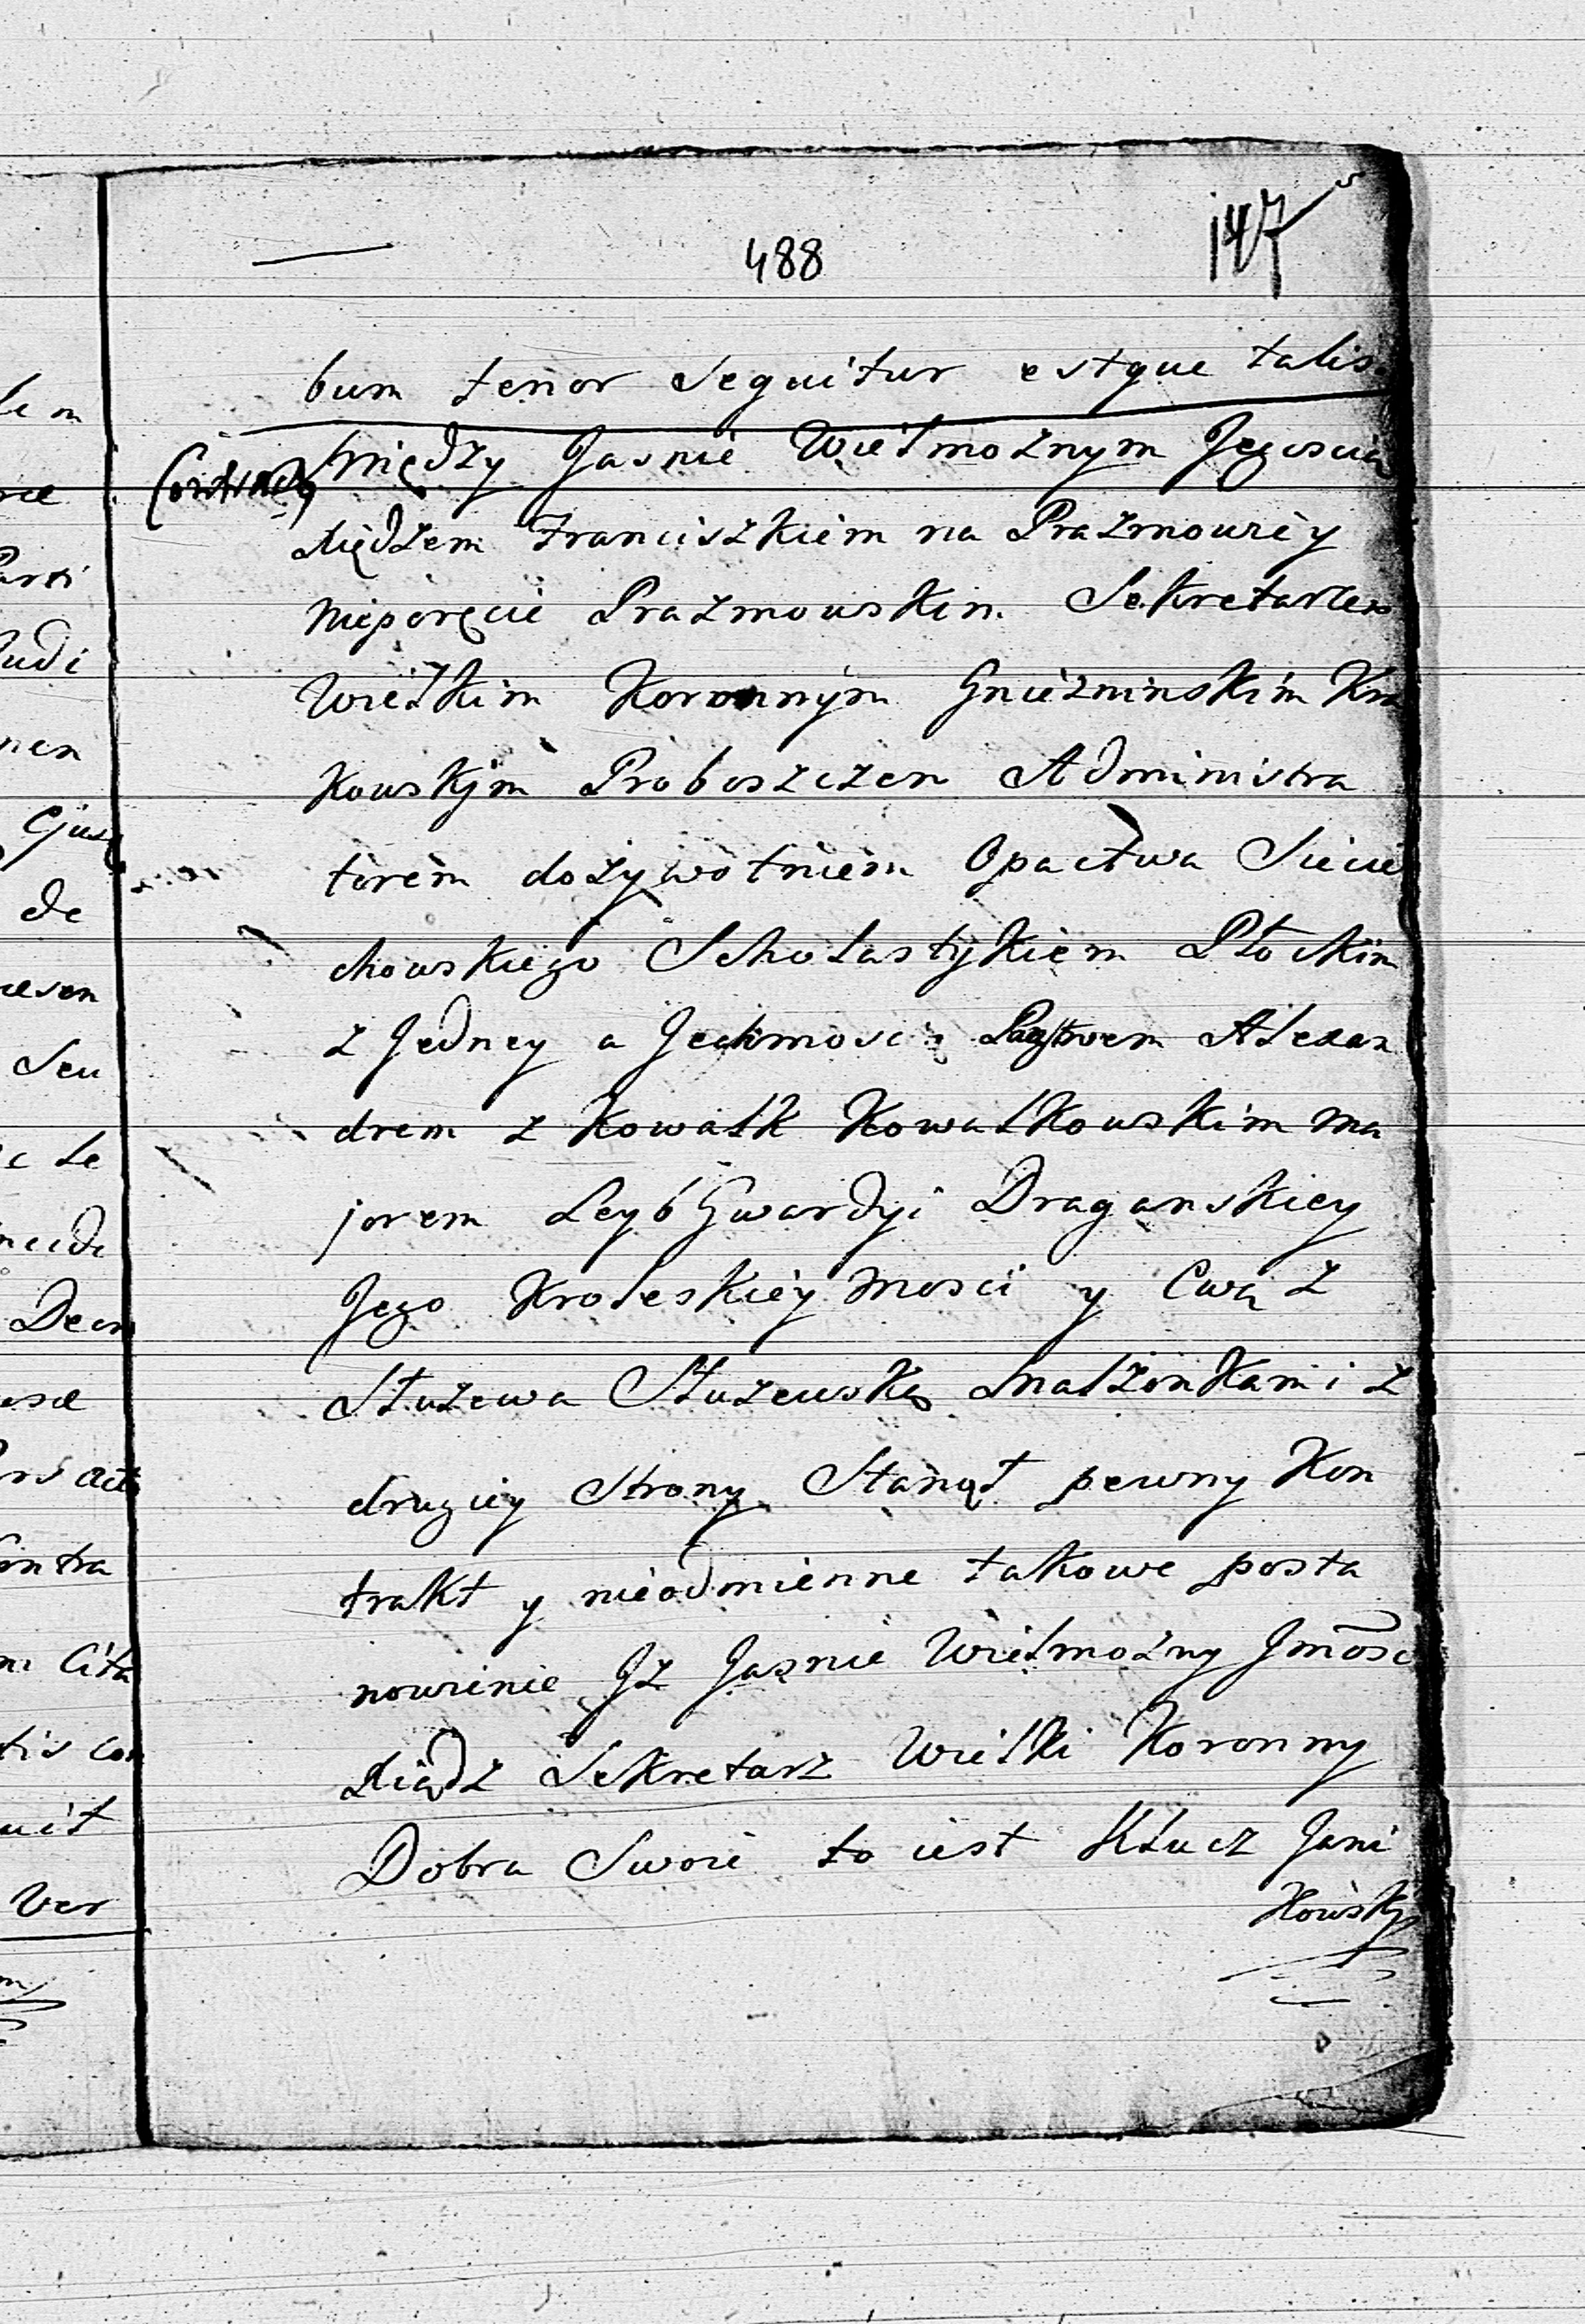 488
147
bum tenor Sequitur estque talis.
Contract
Między Jasnie Wielmożnym Jegoscią
Xiędzem Franciszkiem na Prazmowie y
Nieporęcie Prazmowskim Sekretarzem
Wielkim Koronnym Gniezninskim Kra
kowskim Proboszczem Administra
torem dożywotniem Opactwa Siecie
chowskiego Scholastykiem Płockim
z Jedney a Jchmoscią Państwem Alexan
drem z Kowalk Kowalkowskim Ma
jorem LeybGwardyi Draganskiey
Jego Kroleskiey Mosci y Ewą z
Służewa Służewską Małżonkami z
drugiey Strony Stanął pewny Kon
trakt y nieodmienne takowe posta
nowienie Jż Jasnie Wielmożny Jmosc
Xiądz Sekretarz Wielki Koronny
Dobra Swoie to iest Klucz Jani
kowsky
lem
rae
Parti
Judi
men
Ejusq
de
Seu
le
Dem
Contra
Cita
tis con
uit
Ver